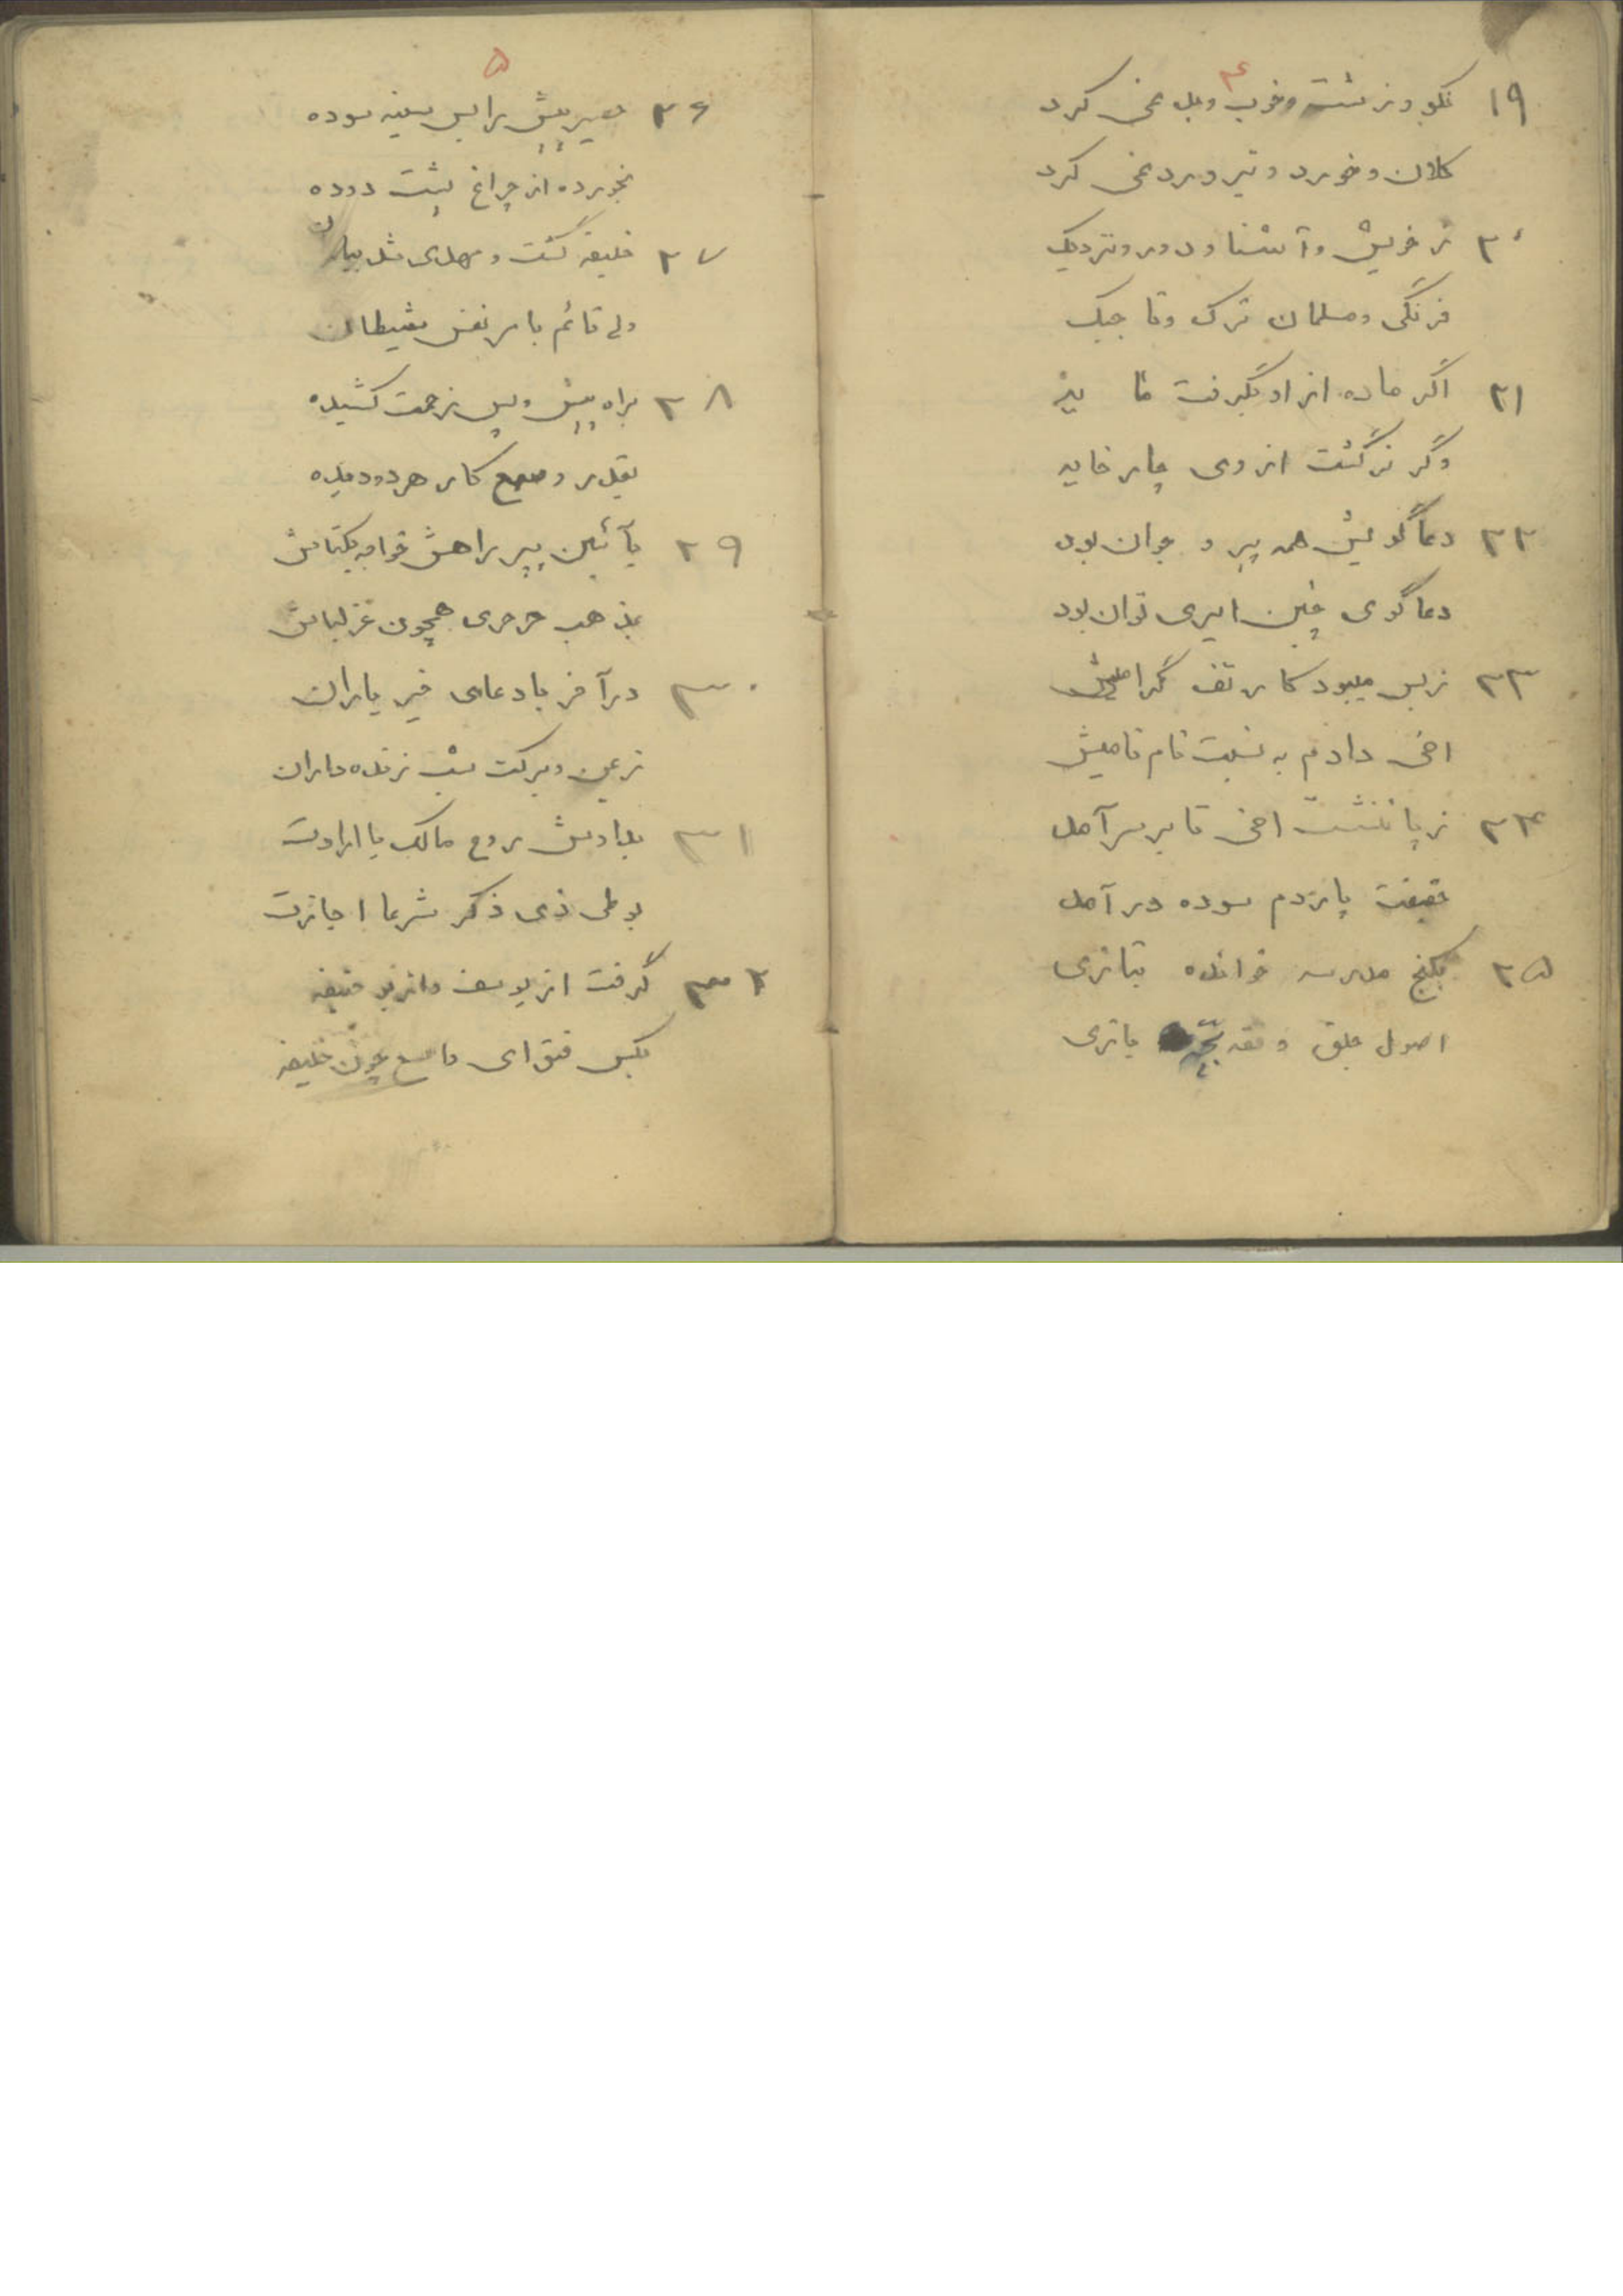 ۴
۱۹ نکو و زشت و خوب و بد نمی کرد
کلان و خورد و تیر و برد نمی کرد
۲۰ ز خویش و آشنا و دور و نزدیک
فرنگی و مسلمان ترک و تاجیک
۲۱ اگر ماده از او بگرفت
وگر نر گشت از وی چار خایه
۲۲ دعا گویش همه پیر و جوان بود
دعا گوی چنین امیری توان بود
۲۳ ز بس میبود کار تف گرامیش
اخی دادم به نسبت نام نامیش
۲۴ ز پا ننشست اخی تا بر سر آمد
حقیقت پانزدم سوده در آمد
۲۵ بکنج مدرسه خوانده بتازی
اصول جلق و فقه بچه بازی
۵
۲۶ حصیریش را بس سینه سوده
نخورده از چراغ پشت دوده
۲۷ خلیفه گشت و مهدی مثل بیان
ولی قائم بامر نفس شیطان
۲۸ براه پیش و پس زحمت کشیده
بقدر وسع کار هر دو دیده
۲۹ بآئین پیر راهش خواجه بکتاش
بمذهب خرخری همچون قزلباش
۳۰ در آخر با دعای خیر یاران
ز یمن و برکت شب زنده داران
۳۱ بدادش روح مالک با ارادت
بوطی ذی ذکر شرعا اجازت
۳۲ گرفت از یوسف و از بو حنیفه
بکس فتوای واسع چون خلیفه